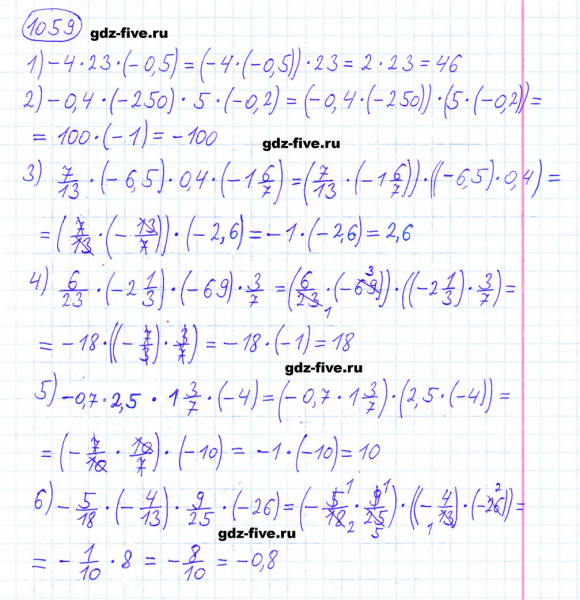 1059 gdz-five.ru
1) -4·23·(-0,5) = (-4·(-0,5))·23 = 2·23 = 46
2) -0,4·(-250)·5·(-0,2) = (-0,4·(-250))·(5·(-0,2)) =
= 100·(-1) = -100
gdz-five.ru
3) 7/13·(-6,5)·0,4·(-1 6/7) = (7/13·(-1 6/7))·((-6,5)·0,4) =
= (7/13·(-13/7))·(-2,6) = -1·(-2,6) = 2,6
4) 6/23·(-2 1/3)·(-69)·3/7 = (6/23 1·(-69 3))·((-2 1/3)·3/7) =
= -18·((-7/3)·3/7) = -18·(-1) = 18
gdz-five.ru
5) -0,7·2,5·1 3/7·(-4) = (-0,7·1 3/7)·(2,5·(-4)) =
= (-7/10·10/7)·(-10) = -1·(-10) = 10
6) -5/18·(-4/13)·9/25·(-26) = (-5 1/18 2·9 1/25 5)·((-4/13 1)·(-26 2)) =
gdz-five.ru
= -1/10·8 = -8/10 = -0,8